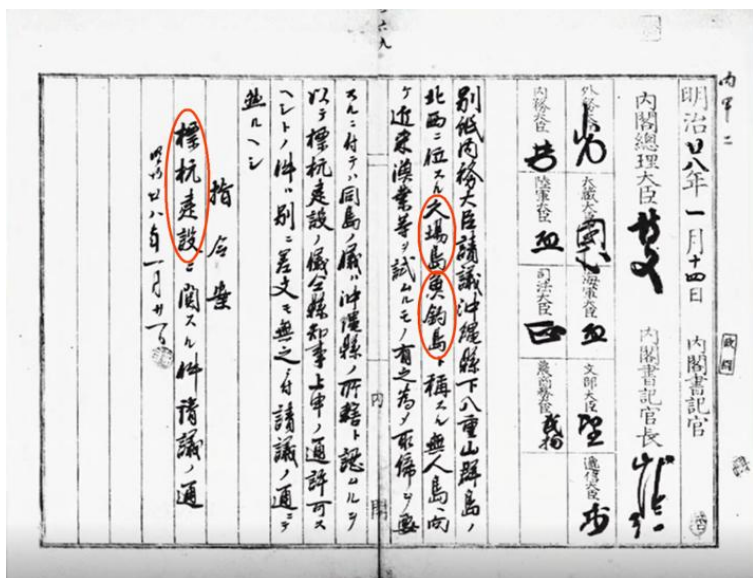 内甲二
明治廿八年一月十四日 内閣書記官
内閣總理大臣 内閣書記官長
外務大臣 大藏大臣 海軍大臣 文部大臣 遞信大臣
内務大臣 陸軍大臣 司法大臣 農商務大臣
別紙内務大臣請議沖縄縣下八重山群島ノ
北西ニ位スル久場島魚釣島ト稱スル無人島ヘ向
ケ近来漁業等ヲ試ムルモノ有之為メ取締ヲ要
スルニ付テハ同島ノ儀ハ沖縄縣ノ所轄ト認ムルヲ
以テ標杭建設ノ儀仝縣知事上申ノ通許可ス
ヘシトノ件ハ別ニ差支モ無之ニ付請議ノ通ニテ
然ルヘシ
指令案
標杭建設ニ関スル件請議ノ通
明治廿八年一月廿一日
内閣